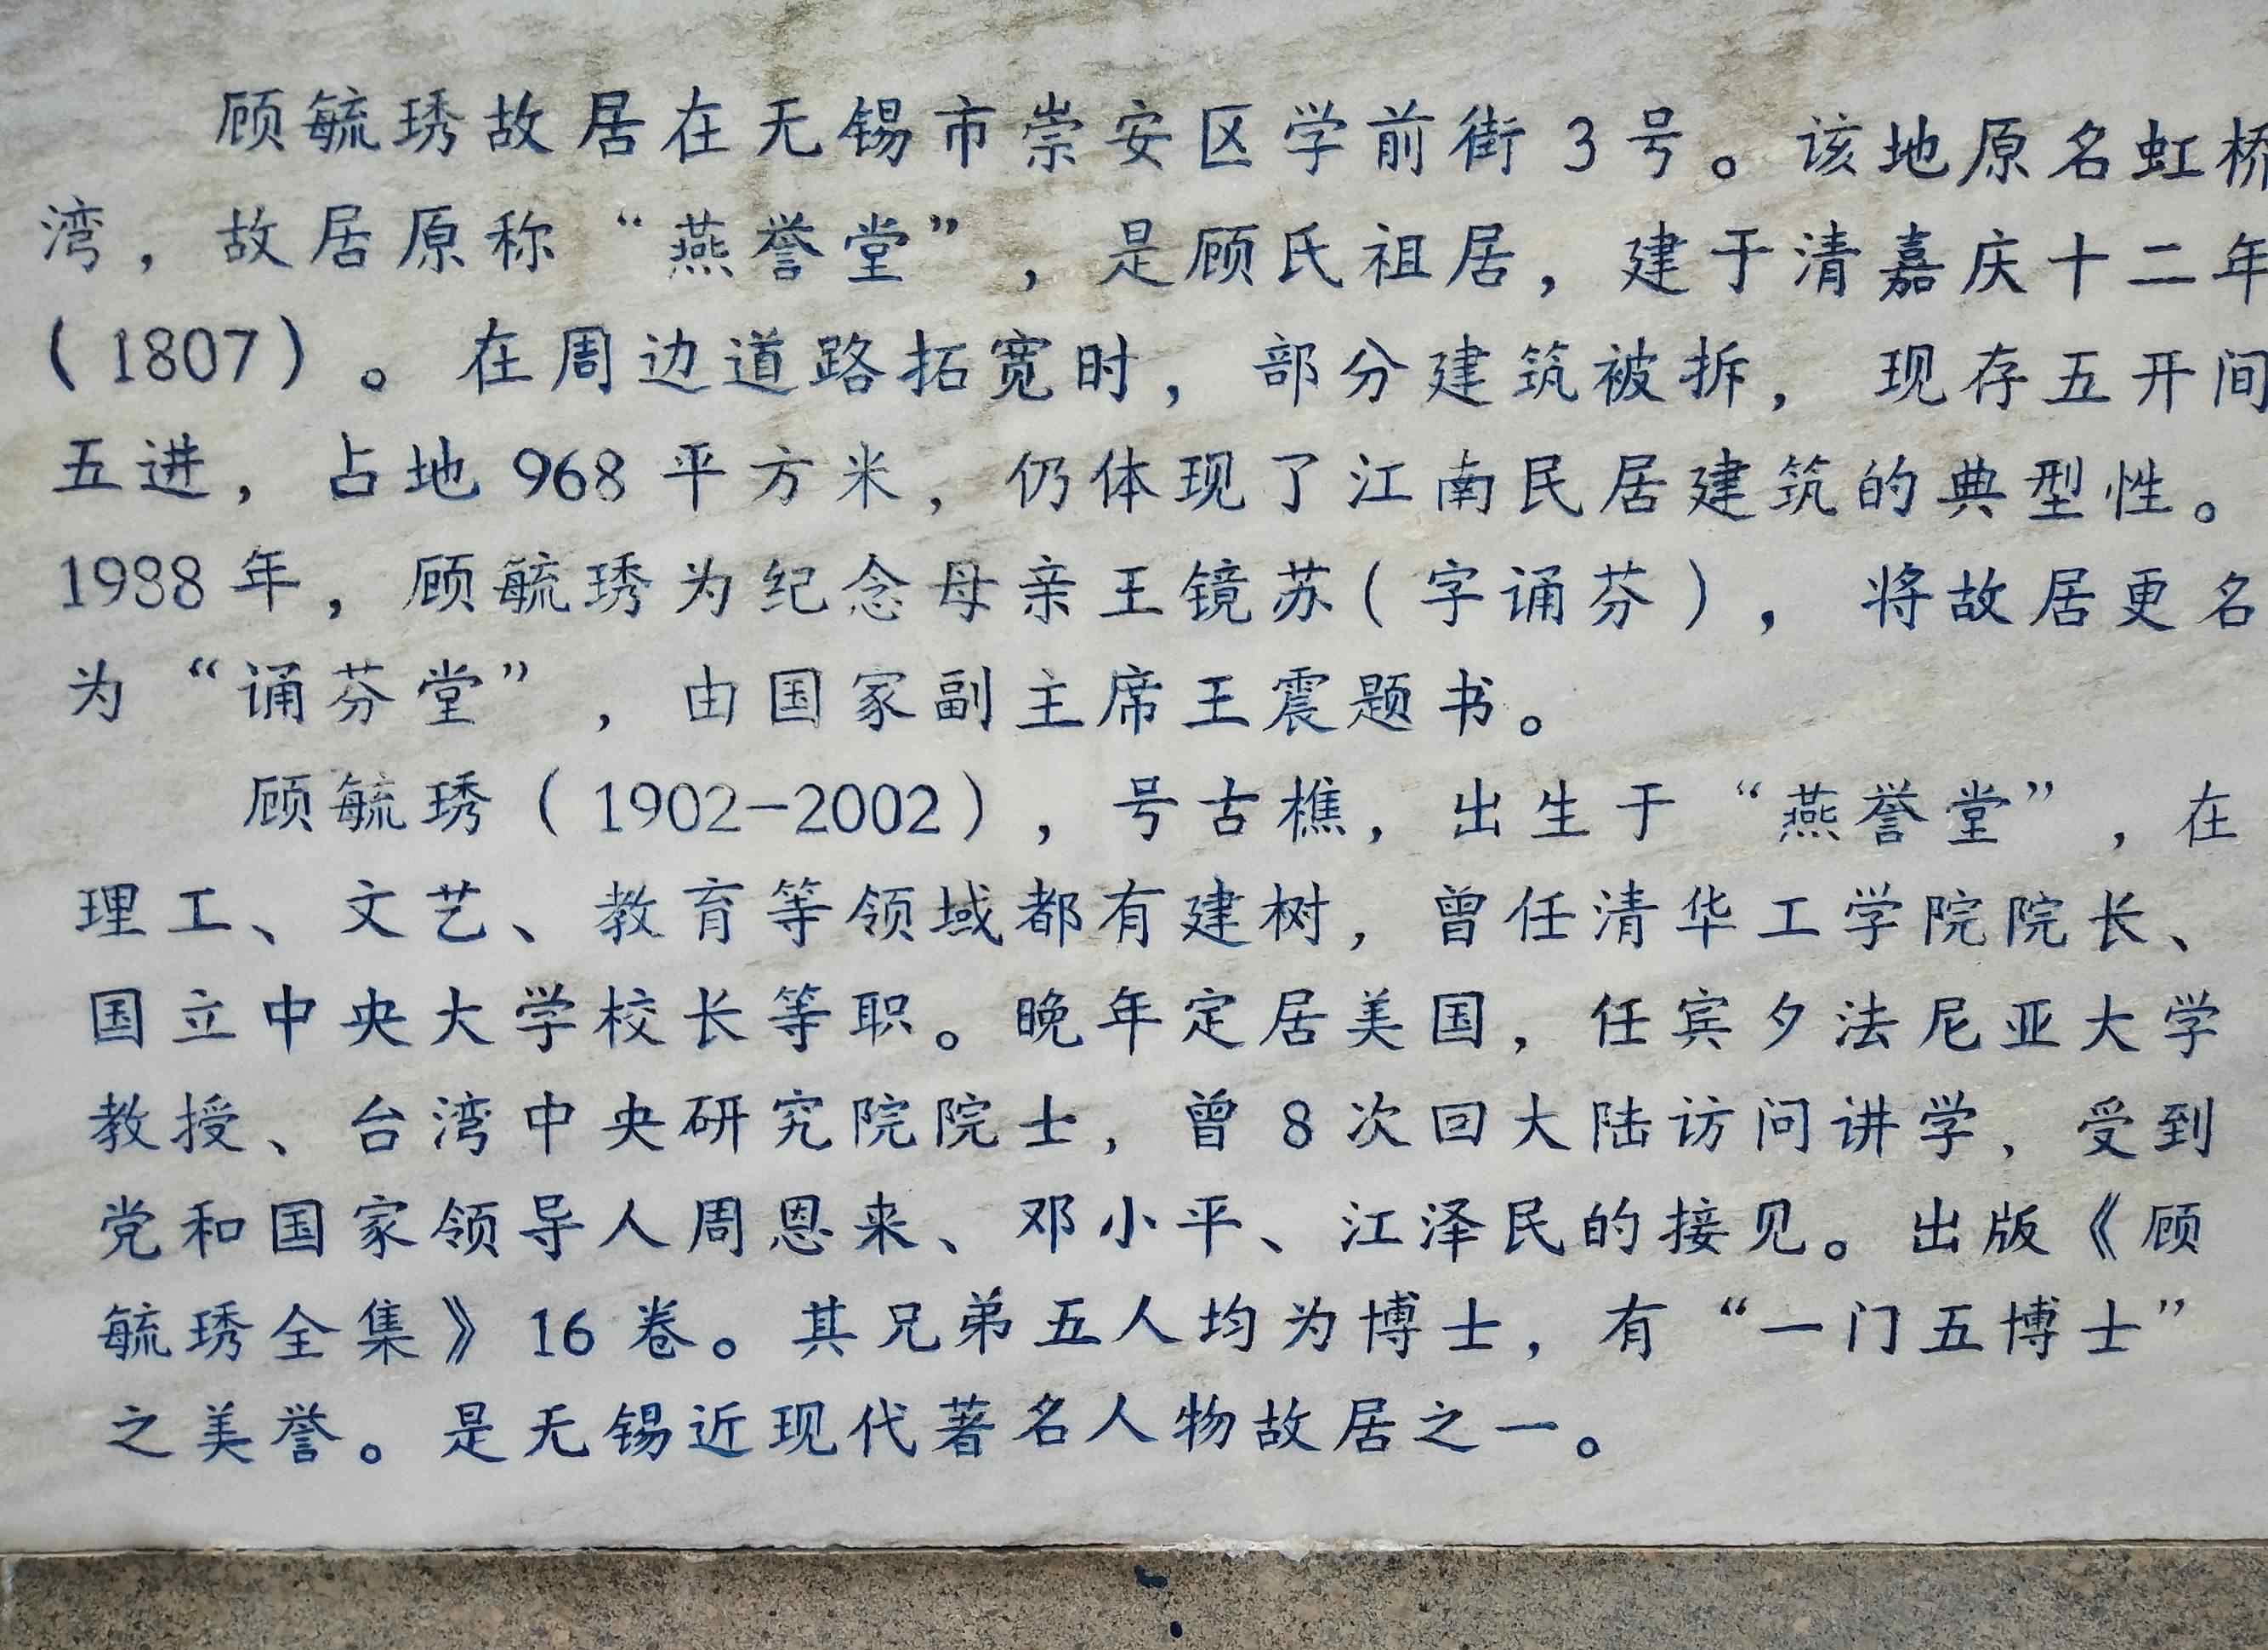 顾毓琇故居在无锡市崇安区学前街3号。该地原名虹桥
湾，故居原称“燕誉堂”，是顾氏祖居，建于清嘉庆十二年
（1807）。在周边道路拓宽时，部分建筑被拆，现存五开间
五进，占地968平方米，仍体现了江南民居建筑的典型性。
1988年，顾毓琇为纪念母亲王镜苏（字诵芬），将故居更名
为“诵芬堂”，由国家副主席王震题书。
顾毓琇（1902-2002），号古樵，出生于“燕誉堂”，在
理工、文艺、教育等领域都有建树，曾任清华工学院院长、
国立中央大学校长等职。晚年定居美国，任宾夕法尼亚大学
教授、台湾中央研究院院士，曾8次回大陆访问讲学，受到
党和国家领导人周恩来、邓小平、江泽民的接见。出版《顾
毓琇全集》16卷。其兄弟五人均为博士，有“一门五博士”
之美誉。是无锡近现代著名人物故居之一。